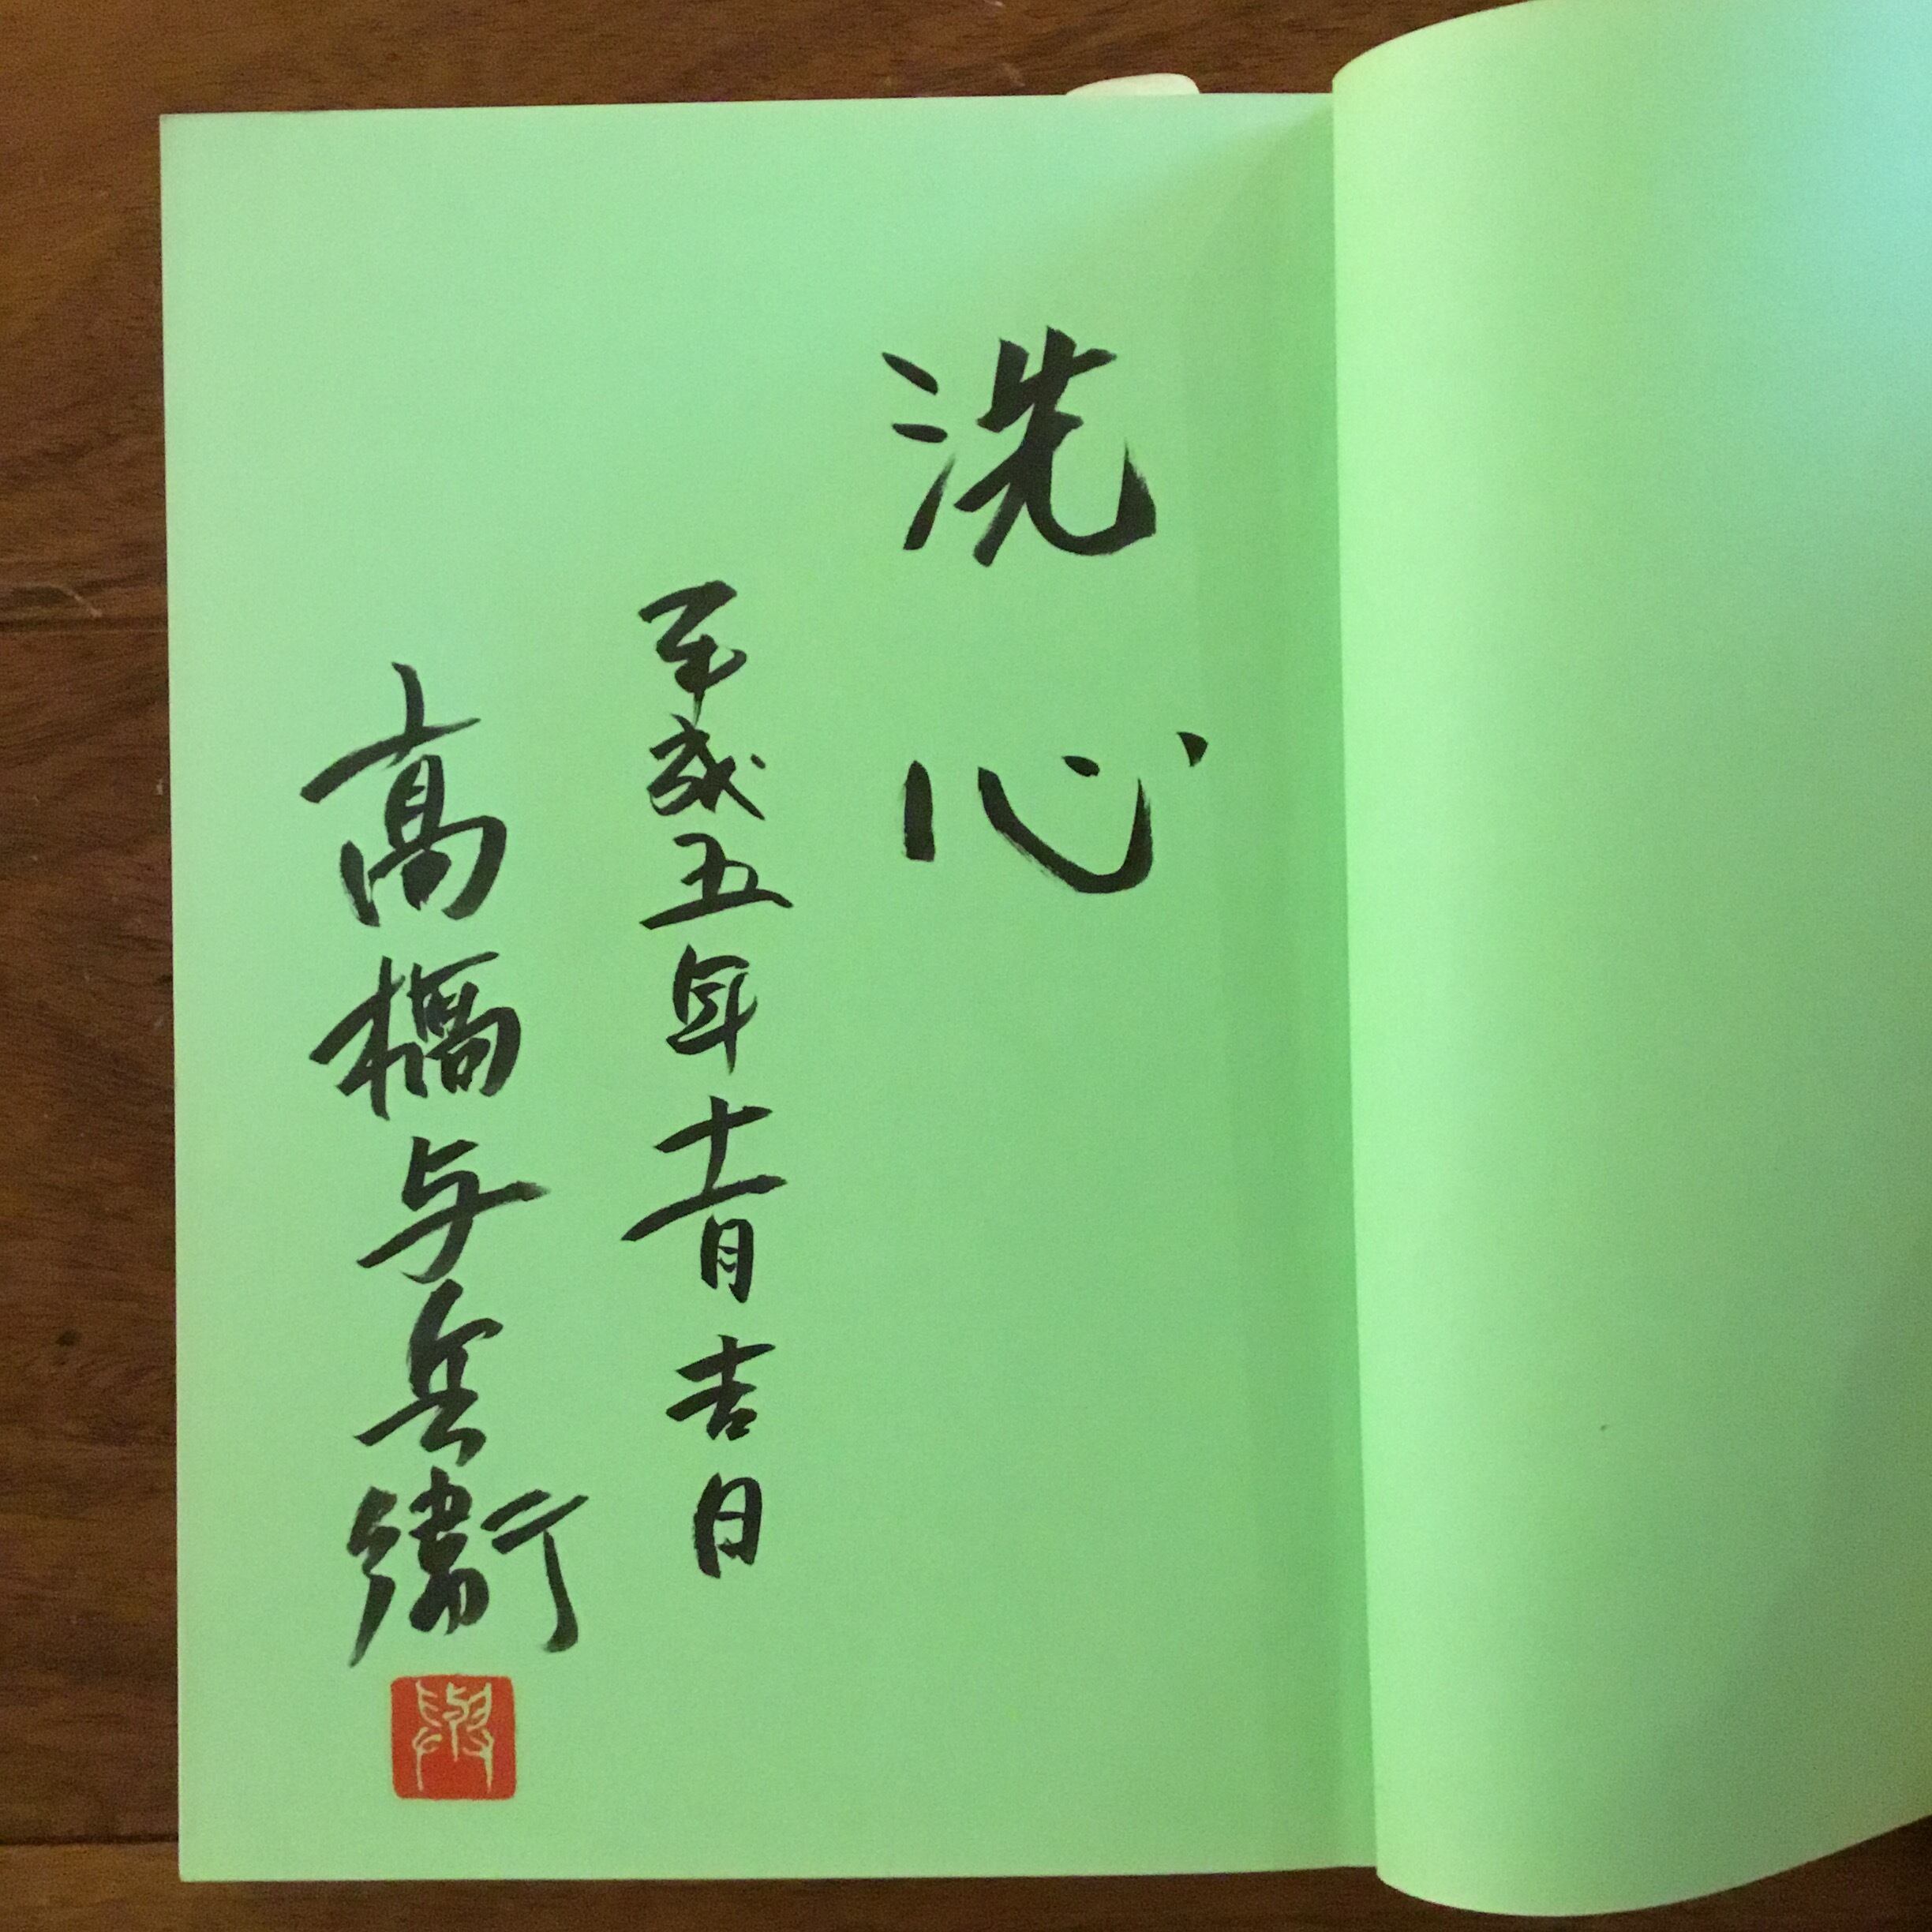 洗心
平成五年十一月吉日
高橋与兵衛
與